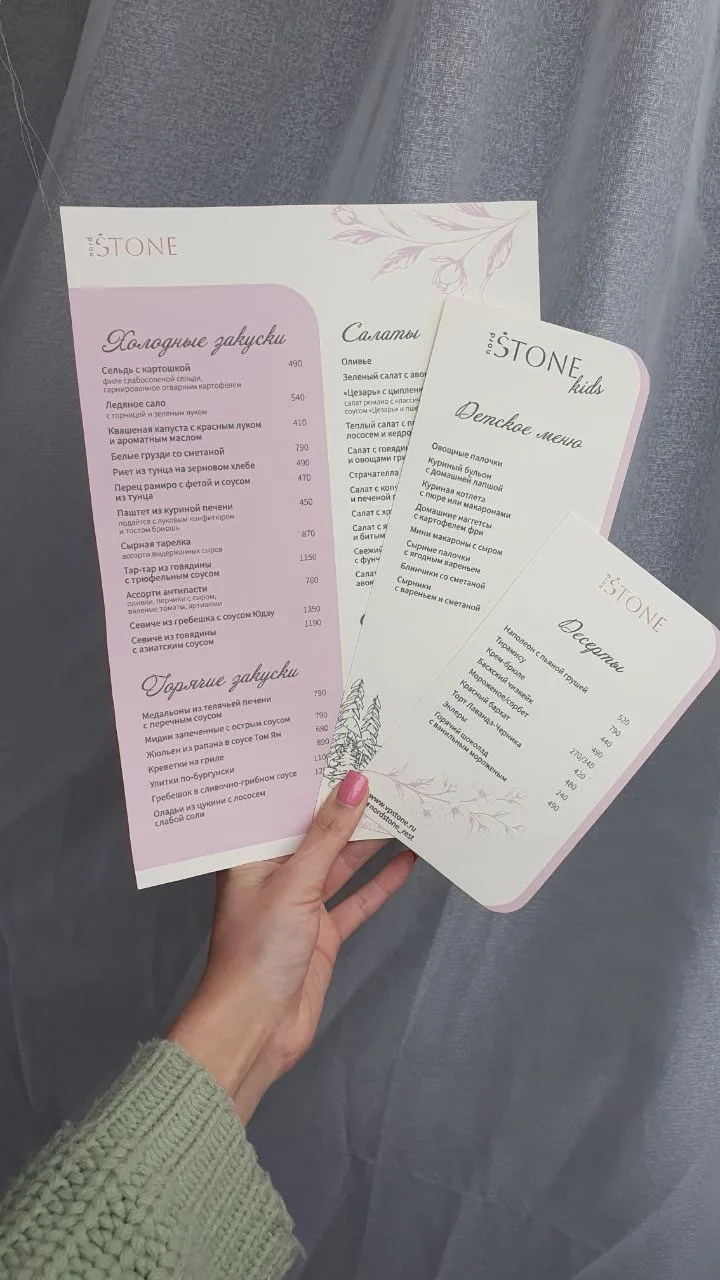 nord
STONE
Холодные закуски
Сельдь с картошкой 490
филе слабосоленой сельди,
гарнированное отварным картофелем
Ледяное сало 540
с горчицей и зеленым луком
Квашеная капуста с красным луком 410
и ароматным маслом
Белые грузди со сметаной 790
Риет из тунца на зерновом хлебе 490
Перец рамиро с фетой и соусом 470
из тунца
Паштет из куриной печени 450
подаётся с луковым конфитюром
и тостом бриошь
Сырная тарелка 870
ассорти выдержанных сыров
Тар-тар из говядины 1150
с трюфельным соусом
Ассорти антипасти 760
оливки, перчики с сыром,
вяленые томаты, артишоки
Севиче из гребешка с соусом Юдзу 1350
Севиче из говядины 1190
с азиатским соусом
Горячие закуски
Медальоны из телячьей печени 790
с перечным соусом
Мидии запеченные с острым соусом 790
Жюльен из рапана в соусе Том Ям 680
Креветки на гриле 890
Улитки по-бургунски
Гребешок в сливочно-грибном соусе
Оладьи из цукини с лососем
слабой соли
Салаты
Оливье
Зеленый салат с
«Цезарь» с
салат романо с
соусом «Цезарь» и
Теплый салат с
лососем и
Салат с
и овощами
Страчателла
Салат с
и печеной
Салат с
Салат с
и
Свежий
с
Салат
nord
STONE
kids
Детское меню
Овощные палочки
Куриный бульон
с домашней лапшой
Куриная котлета
с пюре или макаронами
Домашние наггетсы
с картофелем фри
Мини макароны с сыром
Сырные палочки
с ягодным вареньем
Блинчики со сметаной
Сырники
с вареньем и сметаной
nord
STONE
Десерты
Наполеон с пьяной грушей 520
Тирамису 440
Крем-брюле 490
Баскский чизкейк 790
Мороженое/сорбет 270/340
Красный бархат 420
Торт Лаванда-черника 480
Эклеры 240
Горячий шоколад 490
с ванильным мороженым
www.vpstone.ru
#nordstone_rest